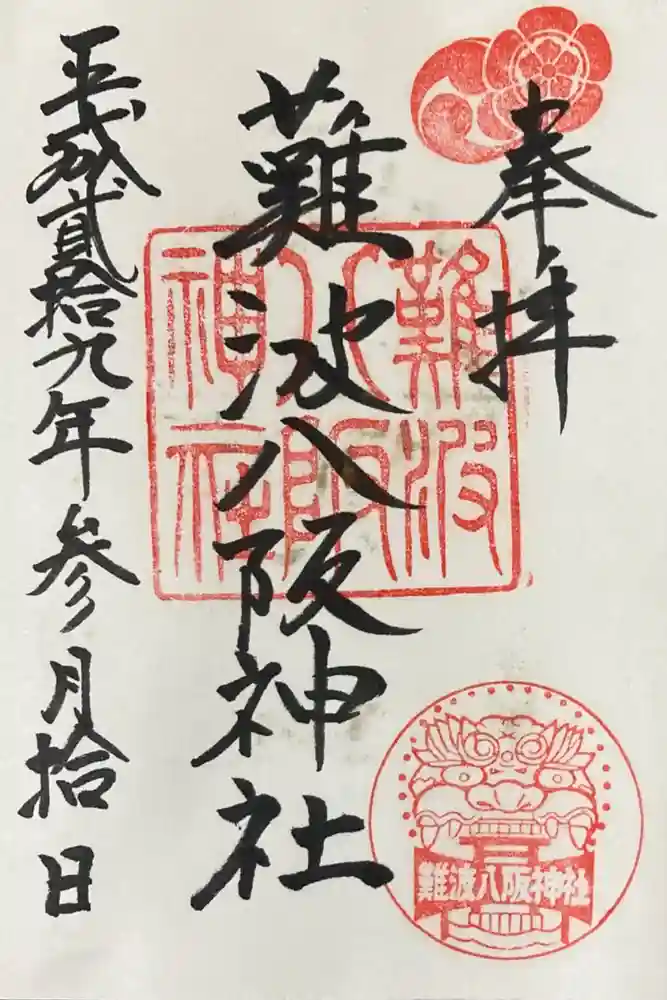 奉拝
難波八阪神社
難波
八阪
神社
平成貳拾九年参月拾日
難波八阪神社